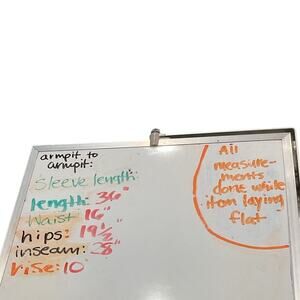 armpit to
armpit:
Sleeve length:
length: 36"
Waist 16"
hips: 19 1/2"
inseam: 28"
rise: 10"
All
measure-
ments
done while
item laying
flat